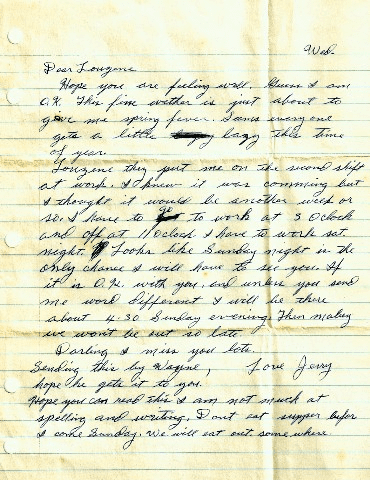 Wed.
Dear Louzene
Hope you are feeling well. Guess I am
O.K. This fine wether is just about to
give me spring fever. I am everyone
gets a little lazy this time
of year.
Louzene they put me on the second shift
at work. I knew it was comming but
I thought it would be another week or
so. I have to go to work at 3 Oclock
and off at 11 Oclock I have to work sat.
night. Looks like Sunday night in the
only chance I will have to see you. If
it is O.K. with you, and unless you send
me word different I will be there
about 4:30 Sunday evening. Then maby
we wont be out so late.
Darling I miss you lots.
Sending this by Wayne, Love Jerry
hope he gets it to you.
Hope you can read this I am not much at
spelling and writing. Dont eat supper befor
I come Sunday. We will eat out some where